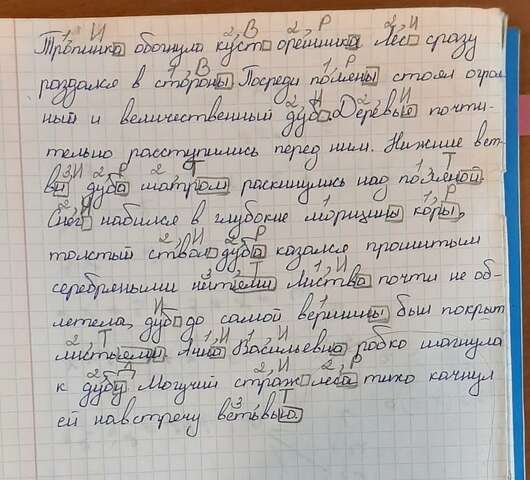 Тропинка обогнула куст орешника Лес сразу
раздался в стороны Посреди поляны стоял огром
ный и величественный дуб. Деревья почти-
тельно расступились перед ним. Нижние вет-
ви дуба шатром раскинулись над поляной.
Снег набился в глубокие морщины коры,
толстый ствол дуба казался прошитым
серебряными нитями Листва почти не об-
летела, дуб до самой вершины был покрыт
листьями Анна Васильевна робко шагнула
к дубу Могучий страж леса тихо качнул
ей навстречу ветвью.